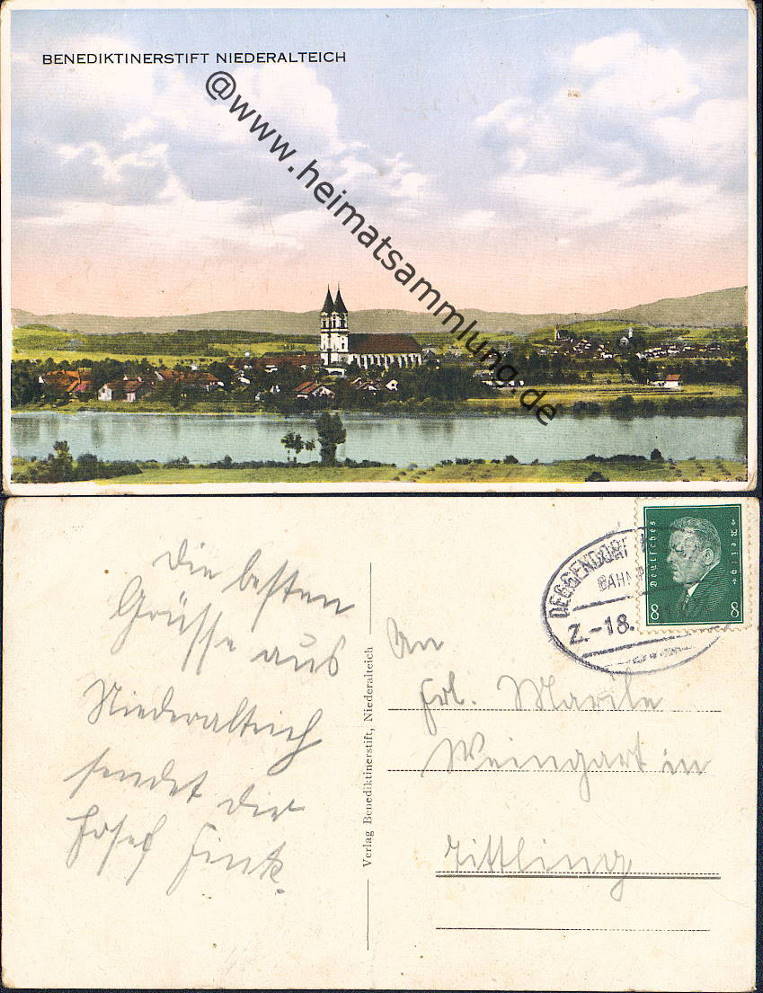 BENEDIKTINERSTIFT NIEDERALTEICH
@www.heimatsammlung.de
Die besten
Grüsse aus
Niederalteich
sendet dir
Josef Fink.
Verlag Benediktinerstift, Niederalteich
DEGGENDORF
BAHN
Z.-18.
Deutsches
Reich
8 8
An
Frl. Marile
Weingart in
Tittling